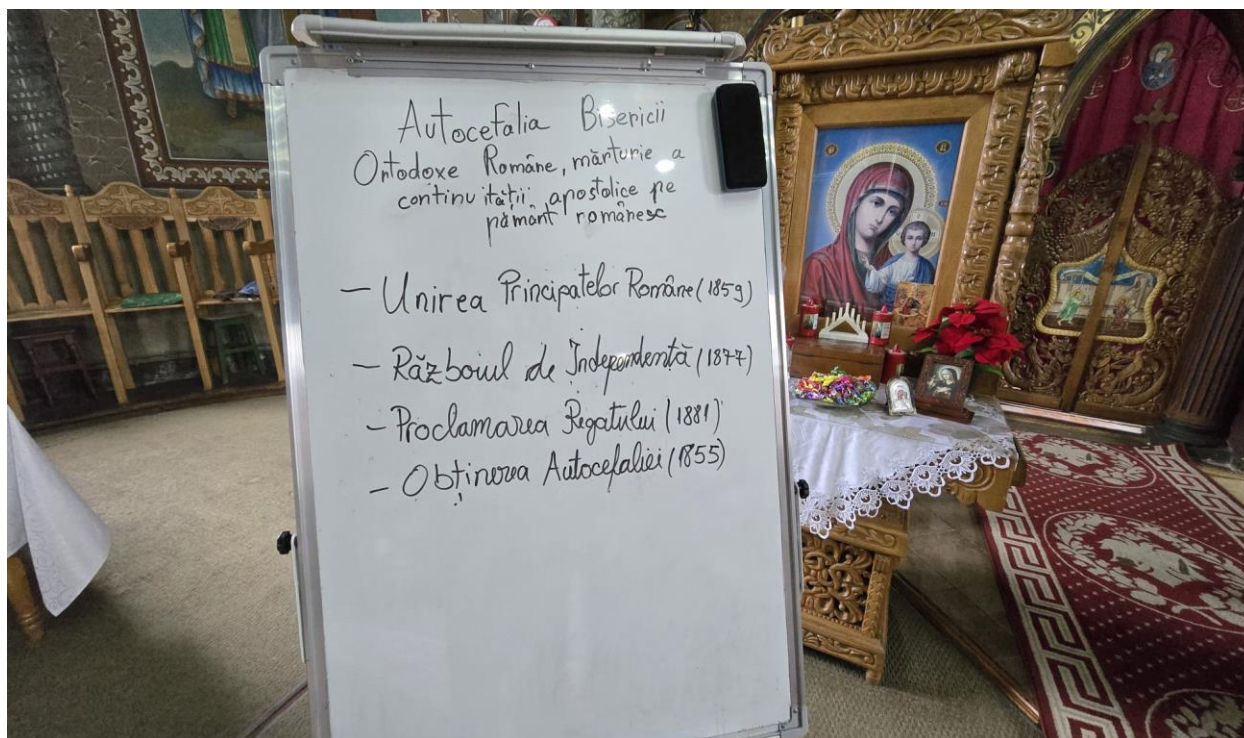 Autocefalia Bisericii
Ortodoxe Române, mărturie a
continuității apostolice pe
pământ românesc
– Unirea Principatelor Române (1859)
– Războiul de Independență (1877)
– Proclamarea Regatului (1881)
– Obținerea Autocefaliei (1855)